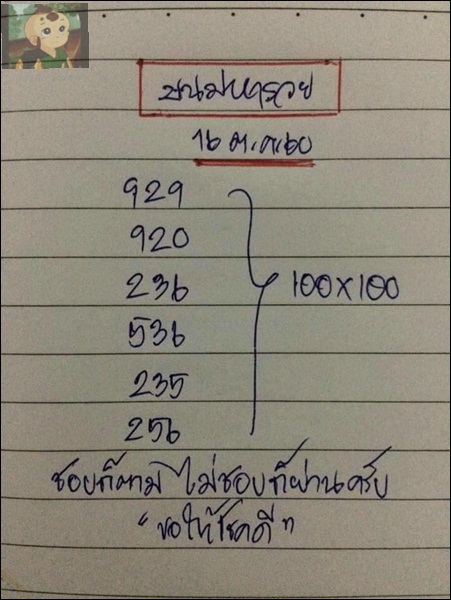 ชนมหารวย
16 ต.ค.60
929
920
236
536
235
256
100x100
ชอบก็ตาม ไม่ชอบก็ผ่านครับ
"ขอให้โชคดี"